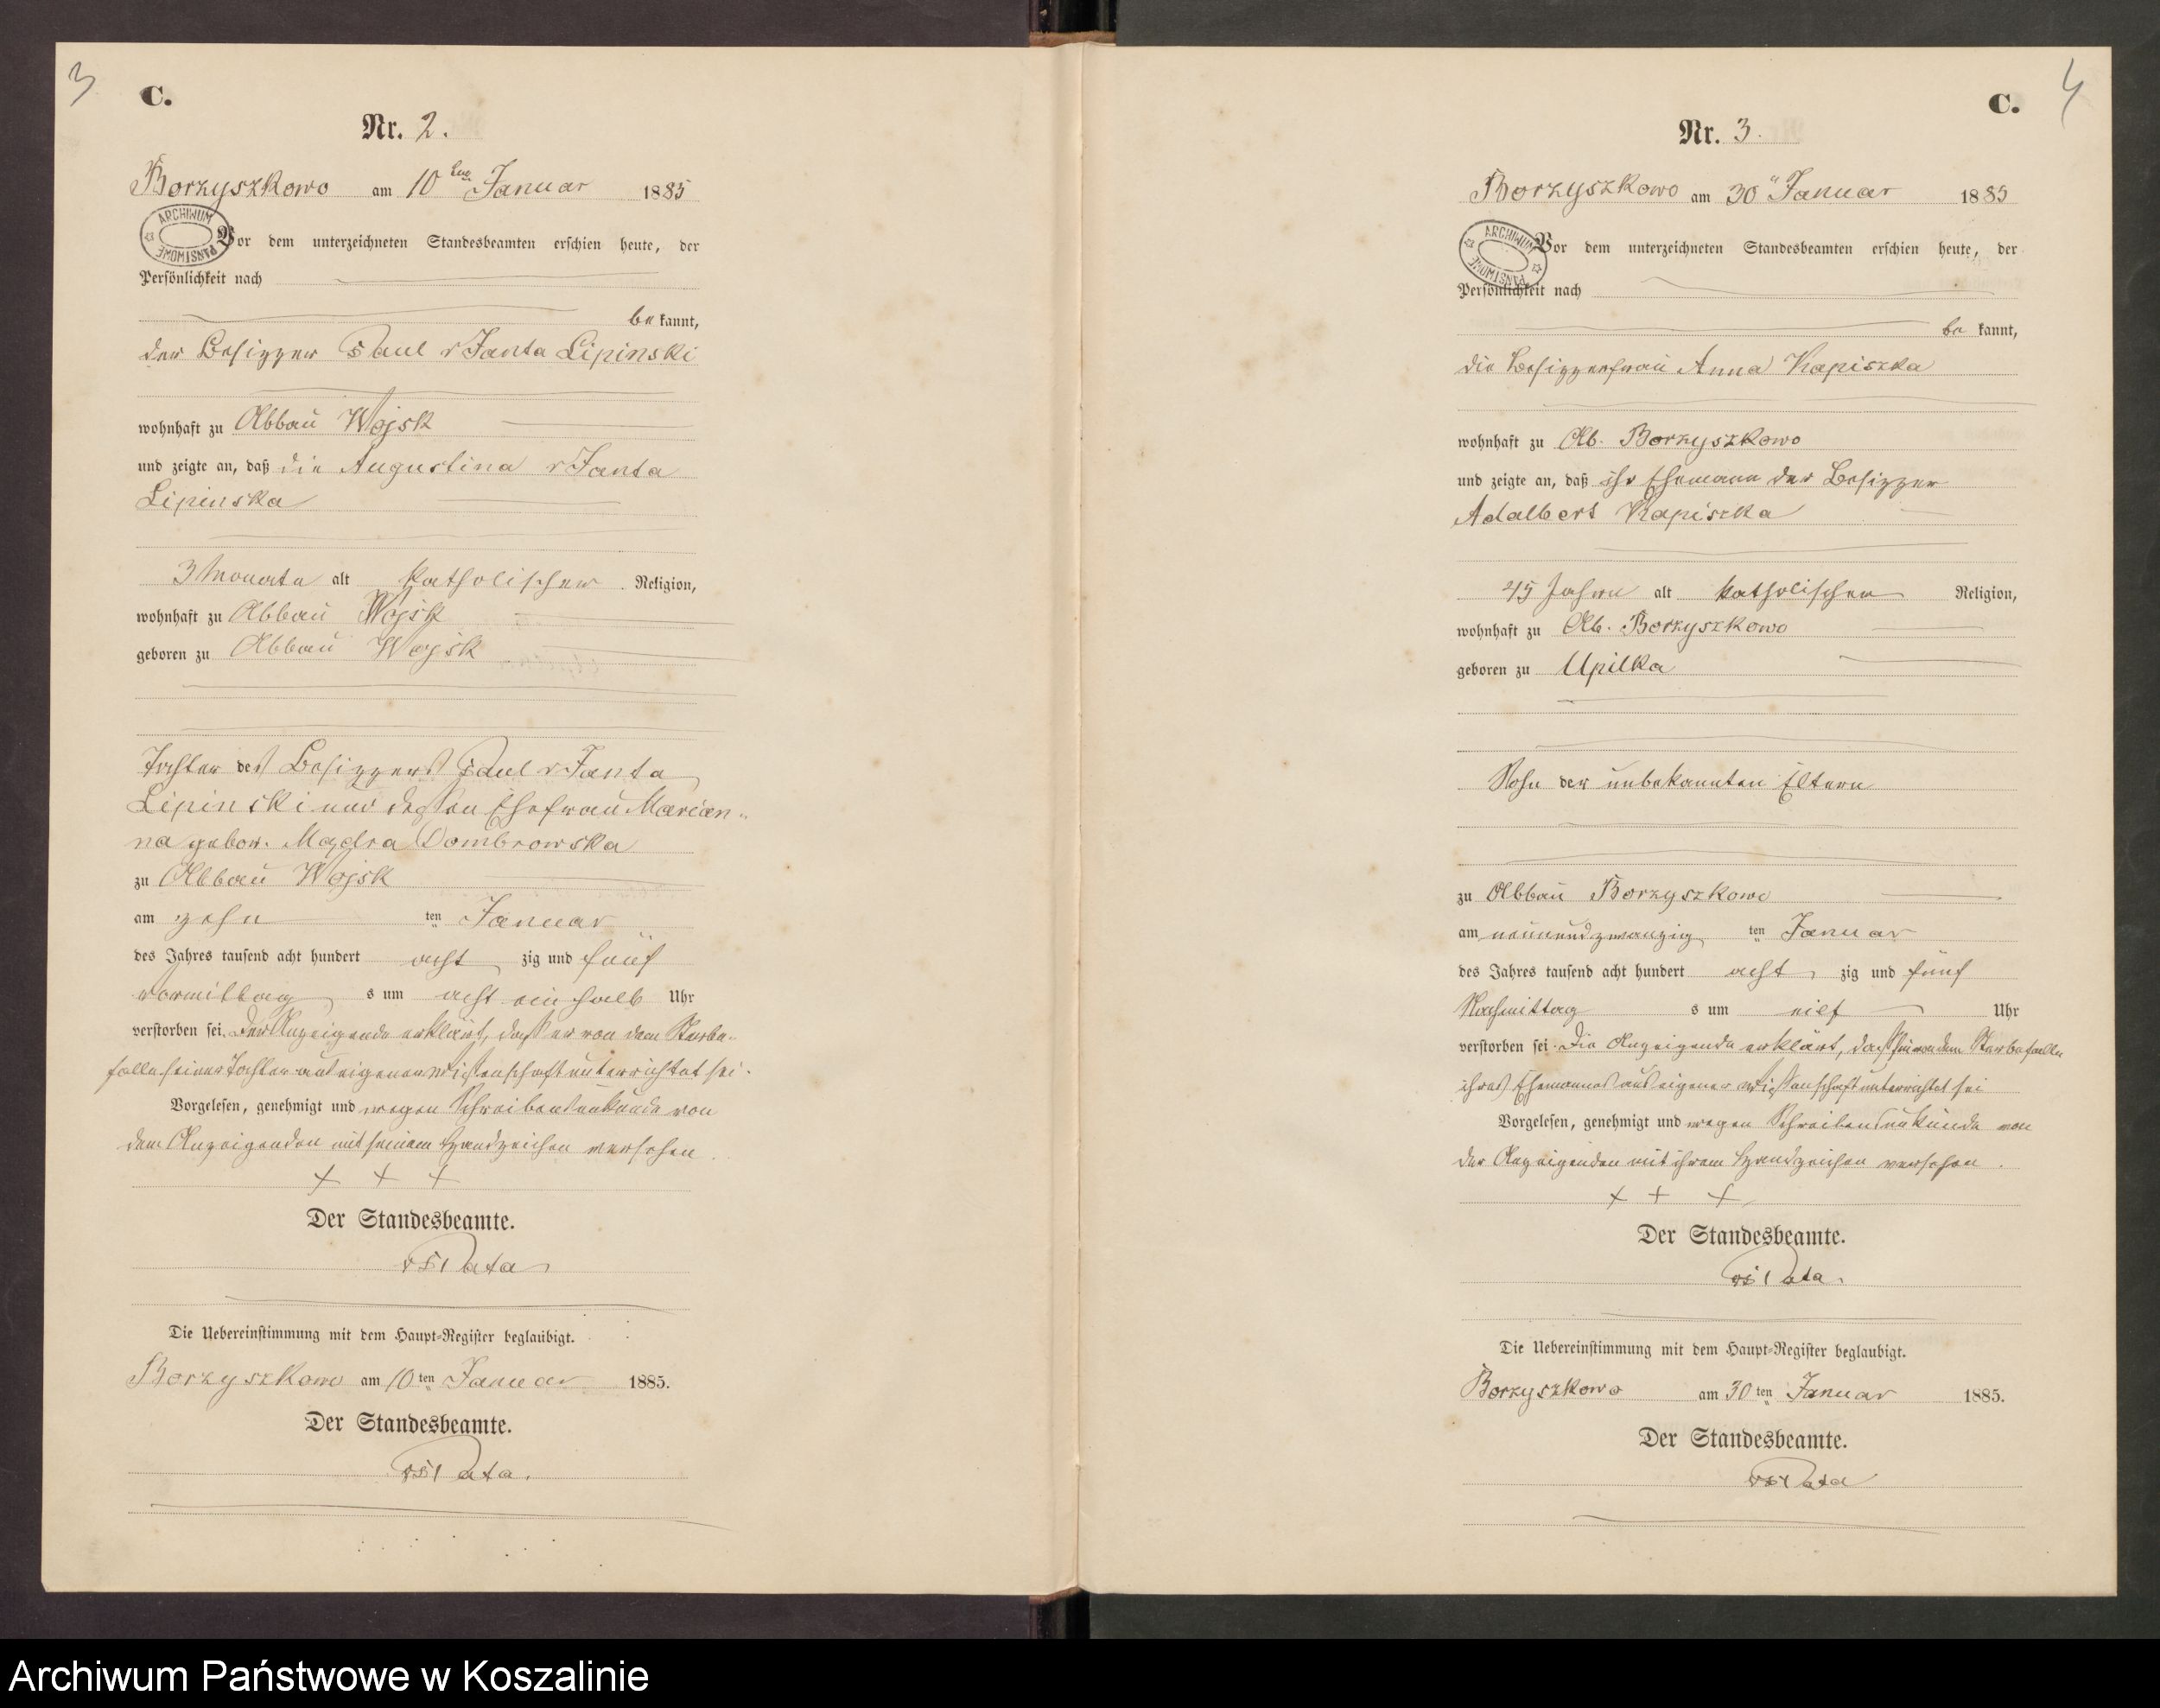 3
C.
Nr. 2.
Borzyszkowo am 10ten Januar 1885
ARCHIWUM PAŃSTWOWE
Vor dem unterzeichneten Standesbeamten erschien heute, der
Persönlichkeit nach
be kannt,
der Besitzer Paul v Janta Lipinski
wohnhaft zu Abbau Wojsk
und zeigte an, daß die Augustina v Janta
Lipinska
3 Monate alt katholischer Religion,
wohnhaft zu Abbau Wojsk
geboren zu Abbau Wojsk
Tochter des Besitzers Paul v Janta
Lipinski und dessen Ehefrau Marian-
na gebor. Mądra Dombrowska
zu Abbau Wojsk
am zehn ten Januar
des Jahres tausend acht hundert acht zig und fünf
vormittag s um acht ein halb Uhr
verstorben sei. Der Anzeigende erklärt, daß er von dem Sterbe-
falle seiner Tochter aus eigener Wissenschaft unterrichtet sei.
Vorgelesen, genehmigt und wegen Schreibensunkunde von
dem Anzeigenden mit seinem Handzeichen versehen.
+ + +
Der Standesbeamte.
Pata
Die Uebereinstimmung mit dem Haupt-Register beglaubigt.
Borzyszkowo am 10ten Januar 1885.
Der Standesbeamte.
Pata.
4
C.
Nr. 3.
Borzyszkowo am 30" Januar 1885
ARCHIWUM PAŃSTWOWE
Vor dem unterzeichneten Standesbeamten erschien heute, der
Persönlichkeit nach
be kannt,
die Besitzerfrau Anna Kapiszka
wohnhaft zu Ab. Borzyszkowo
und zeigte an, daß ihr Ehemann der Besitzer
Adalbert Kapiszka
45 Jahre alt katholischer Religion,
wohnhaft zu Ab. Borzyszkowo
geboren zu Upilka
Sohn der unbekannten Eltern
zu Abbau Borzyszkowo
am neunundzwanzig ten Januar
des Jahres tausend acht hundert acht zig und fünf
Nachmittag s um eilf Uhr
verstorben sei. Die Anzeigende erklärt, daß sie von dem Sterbefalle
ihres Ehemannes aus eigener Wissenschaft unterrichtet sei
Vorgelesen, genehmigt und wegen Schreibensunkunde von
der Anzeigenden mit ihrem Handzeichen versehen.
+ + +
Der Standesbeamte.
Pata.
Die Uebereinstimmung mit dem Haupt-Register beglaubigt.
Borzyszkowo am 30ten Januar 1885.
Der Standesbeamte.
Pata
Archiwum Państwowe w Koszalinie